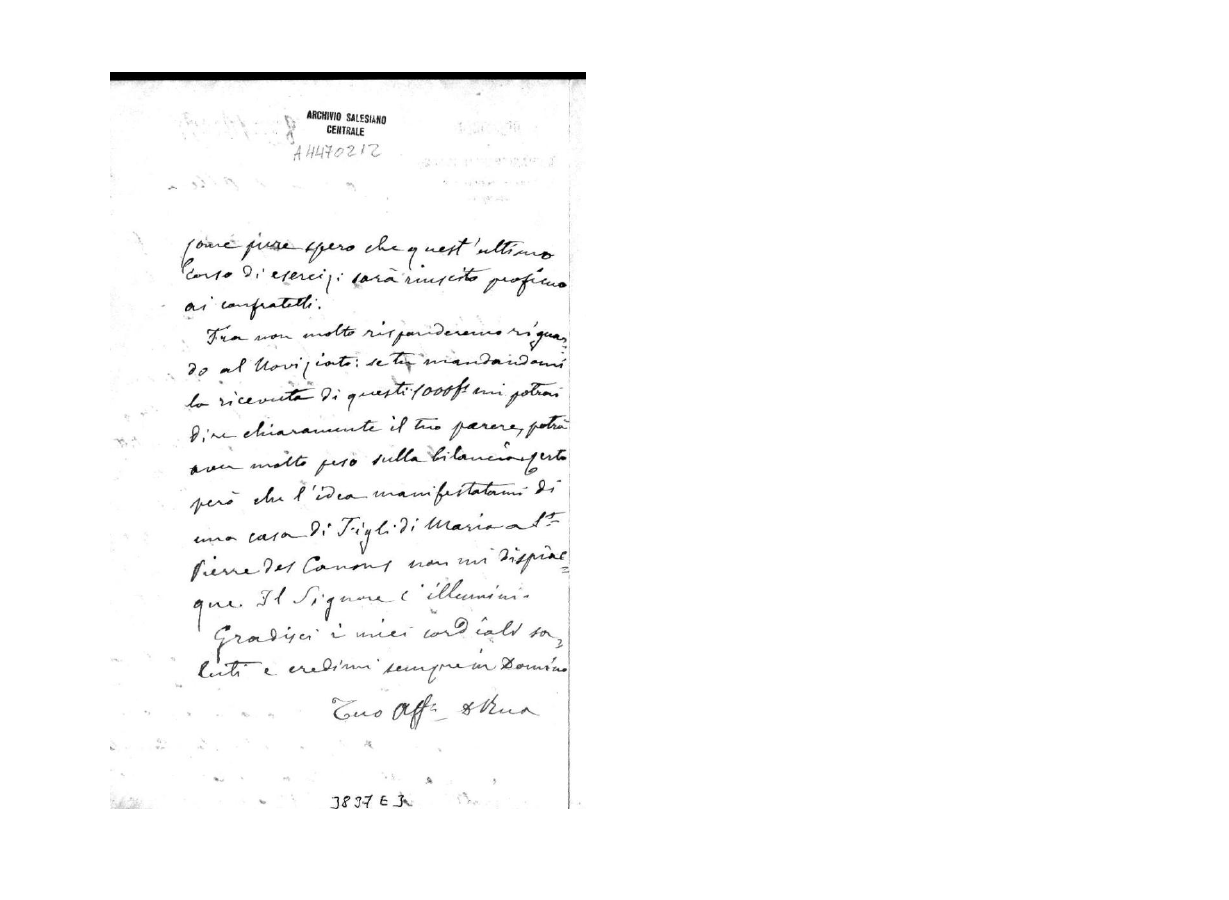 ARCHIVIO SALESIANO
CENTRALE
A4470212
come pure spero che quest'ultimo
corso di esercizi sarà riuscito proficuo
ai confratelli.
Fra non molto risponderemo riguar-
do al Noviziato: se tu mandandomi
la ricevuta di questi 1000f mi potrai
dire chiaramente il tuo parere, potrà
aver molto peso sulla bilancia. Certo
però che l'idea manifestatami di
una casa di Figli di Maria a St
Pierre des Canons non mi dispiac=
que. Il Signore c'illumini.
Gradisci i miei cordiali sa=
luti e credimi sempre in Domino
Tuo Aff. D Rua
3837 E 3